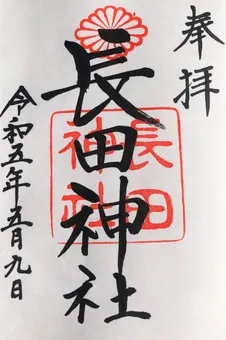 奉拝
長田神社
長田神社
令和五年五月九日